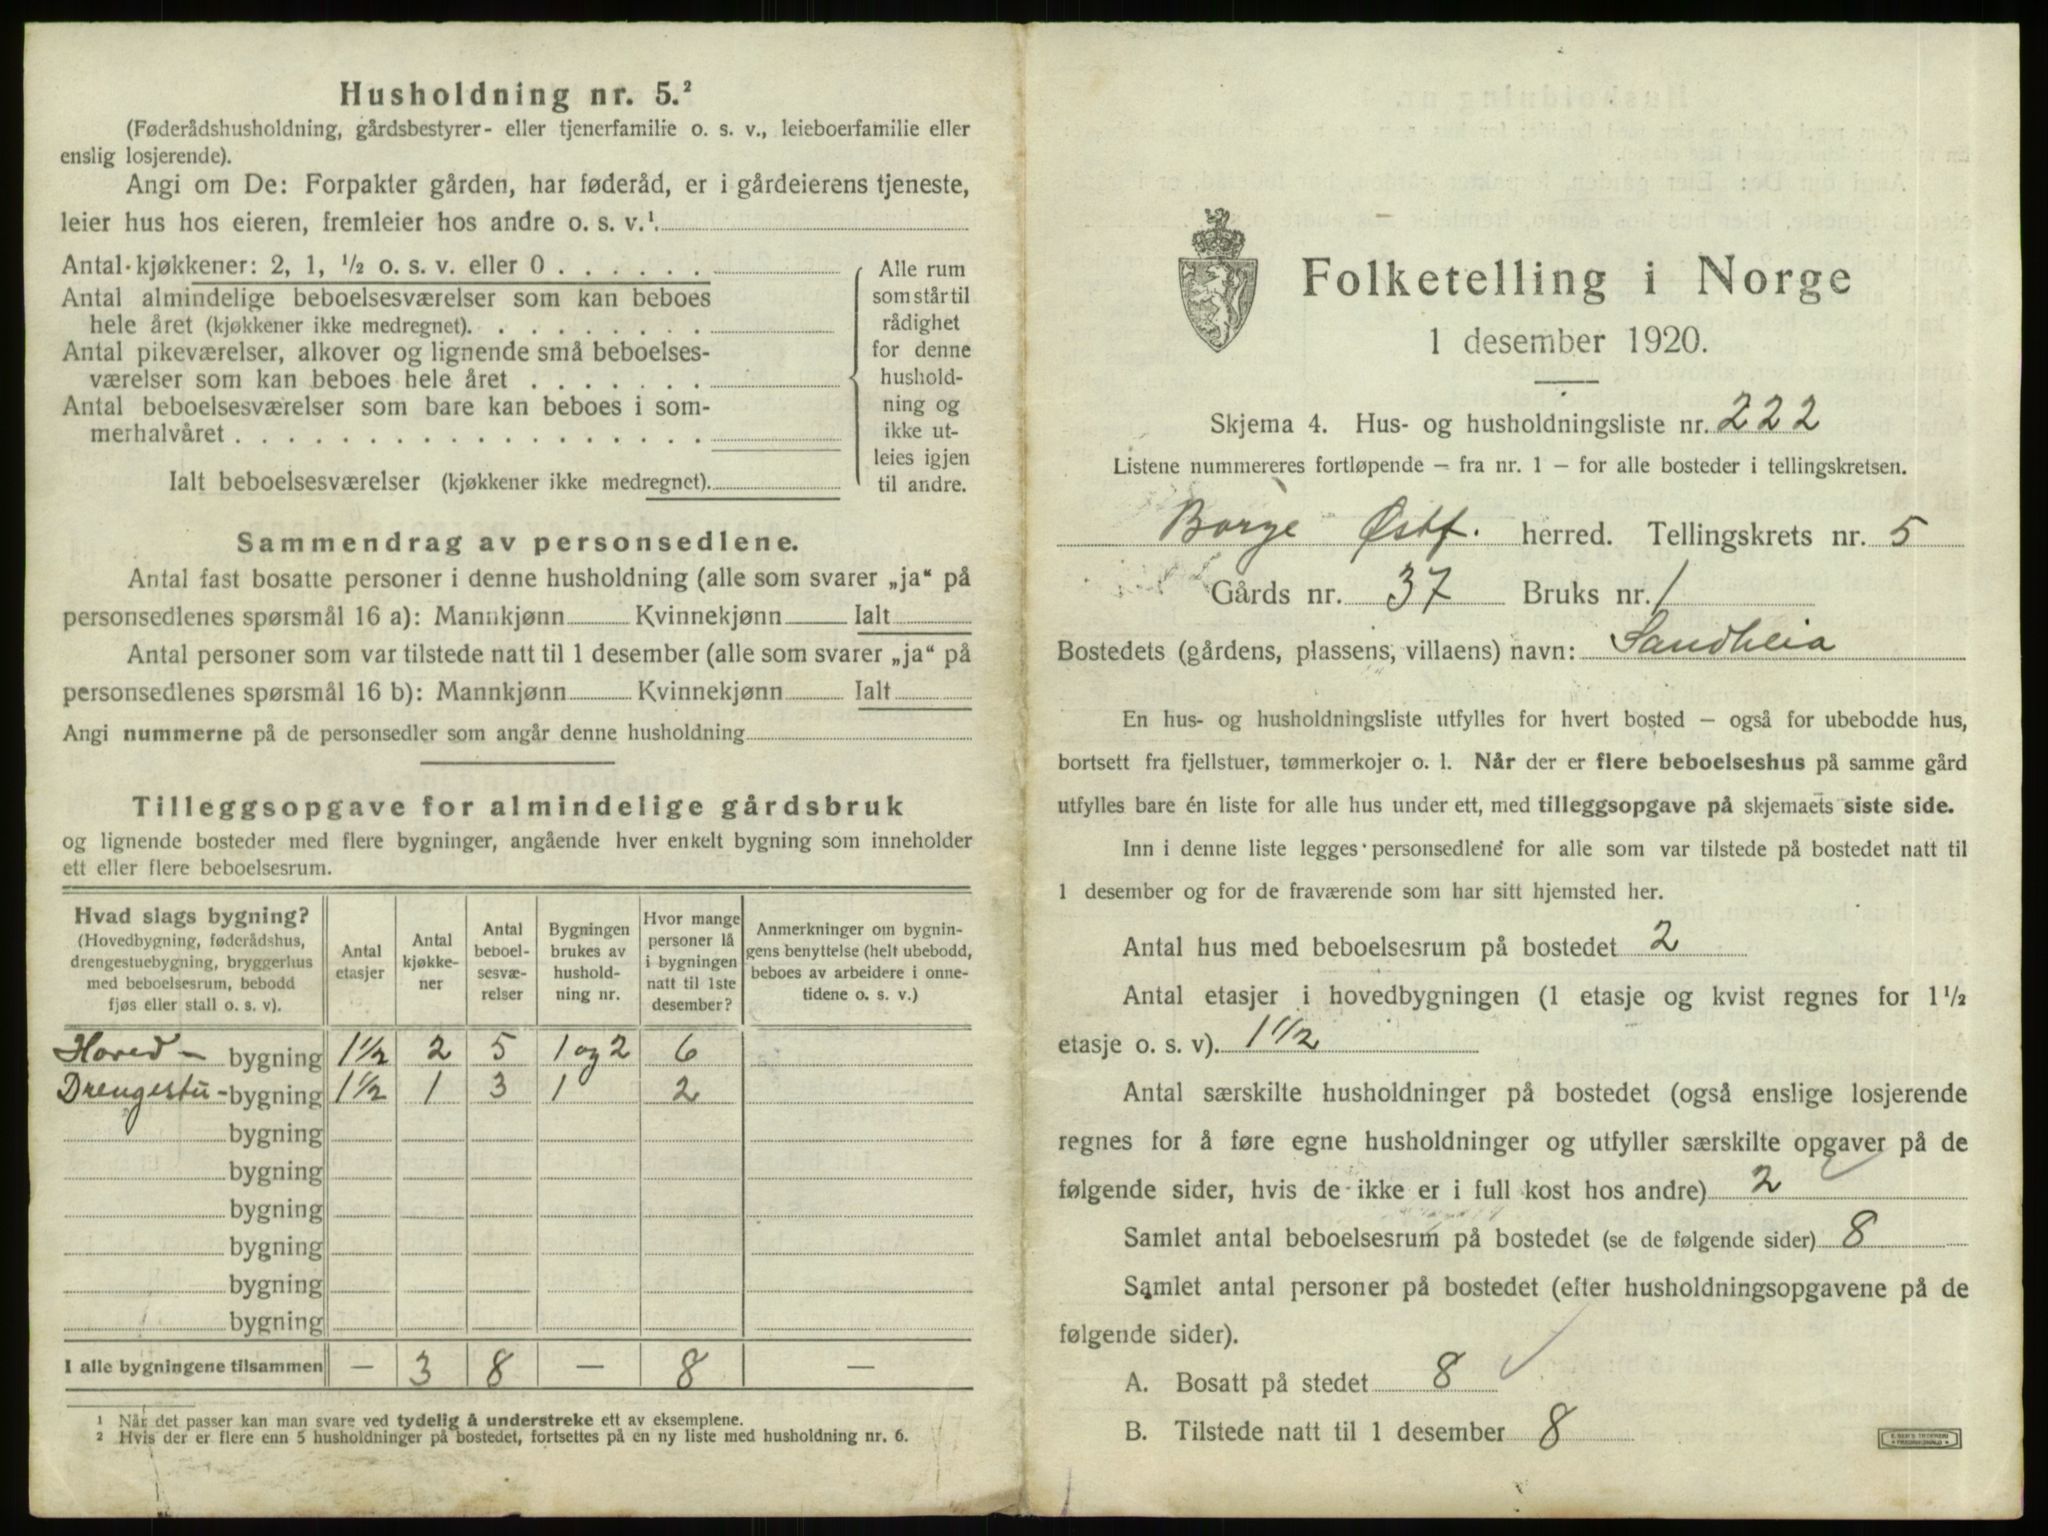 Husholdning nr. 5.²
(Føderådshusholdning, gårdsbestyrer- eller tjenerfamilie o. s. v., leieboerfamilie eller
enslig losjerende).
Angi om De: Forpakter gården, har føderåd, er i gårdeierens tjeneste,
leier hus hos eieren, fremleier hos andre o. s. v.¹
Antal kjøkkener: 2, 1, ½ o. s. v. eller 0 . . . . . .
Antal almindelige beboelsesværelser som kan beboes
hele året (kjøkkener ikke medregnet). . . . . . . . .
Antal pikeværelser, alkover og lignende små beboelses-
værelser som kan beboes hele året . . . . . . .
Antal beboelsesværelser som bare kan beboes i som-
merhalvåret . . . . . . . . . . . . . . . . . .
Ialt beboelsesværelser (kjøkkener ikke medregnet).
Alle rum
som står til
rådighet
for denne
hushold-
ning og
ikke ut-
leies igjen
til andre.
Sammendrag av personsedlene.
Antal fast bosatte personer i denne husholdning (alle som svarer „ja“ på
personsedlenes spørsmål 16 a): Mannkjønn Kvinnekjønn Ialt
Antal personer som var tilstede natt til 1 desember (alle som svarer „ja“ på
personsedlenes spørsmål 16 b): Mannkjønn Kvinnekjønn Ialt
Angi nummerne på de personsedler som angår denne husholdning
Tilleggsopgave for almindelige gårdsbruk
og lignende bosteder med flere bygninger, angående hver enkelt bygning som inneholder
ett eller flere beboelsesrum.
Hvad slags bygning?
(Hovedbygning, føderådshus,
drengestuebygning, bryggerhus
med beboelsesrum, bebodd
fjøs eller stall o. s. v).
Antal
etasjer
Antal
kjøkke-
ner
Antal
beboel-
sesvæ-
relser
Bygningen
brukes av
hushold-
ning nr.
Hvor mange
personer lå
i bygningen
natt til 1ste
desember?
Anmerkninger om bygnin-
gens benyttelse (helt ubebodd,
beboes av arbeidere i onne-
tidene o. s. v.)
Hoved- bygning 1½ 2 5 1 og 2 6
Drengestu- bygning 1½ 1 3 1 2
bygning
bygning
bygning
bygning
bygning
bygning
I alle bygningene tilsammen — 3 8 — 8 —
¹ Når det passer kan man svare ved tydelig å understreke ett av eksemplene.
² Hvis der er flere enn 5 husholdninger på bostedet, fortsettes på en ny liste med husholdning nr. 6.
Folketelling i Norge
1 desember 1920.
Skjema 4. Hus- og husholdningsliste nr. 222
Listene nummereres fortløpende – fra nr. 1 – for alle bosteder i tellingskretsen.
Borge Østf. herred. Tellingskrets nr. 5
Gårds nr. 37 Bruks nr. 1
Bostedets (gårdens, plassens, villaens) navn: Sandheia
En hus- og husholdningsliste utfylles for hvert bosted – også for ubebodde hus,
bortsett fra fjellstuer, tømmerkojer o. l. Når der er flere beboelseshus på samme gård
utfylles bare én liste for alle hus under ett, med tilleggsopgave på skjemaets siste side.
Inn i denne liste legges personsedlene for alle som var tilstede på bostedet natt til
1 desember og for de fraværende som har sitt hjemsted her.
Antal hus med beboelsesrum på bostedet 2
Antal etasjer i hovedbygningen (1 etasje og kvist regnes for 1½
etasje o. s. v). 1½
Antal særskilte husholdninger på bostedet (også enslige losjerende
regnes for å føre egne husholdninger og utfyller særskilte opgaver på de
følgende sider, hvis de ikke er i full kost hos andre) 2
Samlet antal beboelsesrum på bostedet (se de følgende sider) 8
Samlet antal personer på bostedet (efter husholdningsopgavene på de
følgende sider).
A. Bosatt på stedet 8
B. Tilstede natt til 1 desember 8